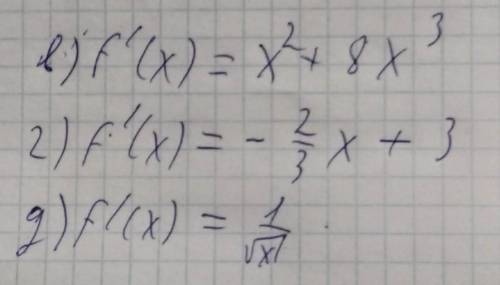 в) f'(x) = x² + 8x³
г) f'(x) = - 2/3 x + 3
д) f'(x) = 1/√x